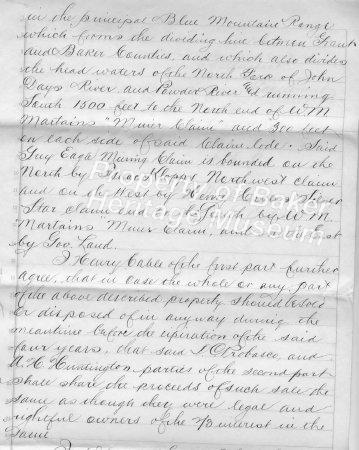 in the principal Blue Mountain Range
which forms the dividing line between Grant
and Baker Counties, and which also divides
the head waters of the North Fork of John
Days River and Powder River and running
South 1500 feet to the North end of W.M.
Martains "Miner Claim" and 300 feet
on each side of said Claim lode. Said
Mining Claim is bounded on the
North by Northwest claim
and on the West by Henry
Star claim and on the South by W.M.
Martains Miner Claim, and on the East
by Gov. Land.
I Henry Cable of the first part further
agree, that in case the whole or any part
of the above described property should be sold
or disposed of in any way during the
meantime before the expiration of the said
four years, that said and
A. H. Huntington parties of the second part
shall share the proceeds of such sale the
same as though they were legal and
rightful owners of the interest in the
same
Property of Baker
Heritage Museum